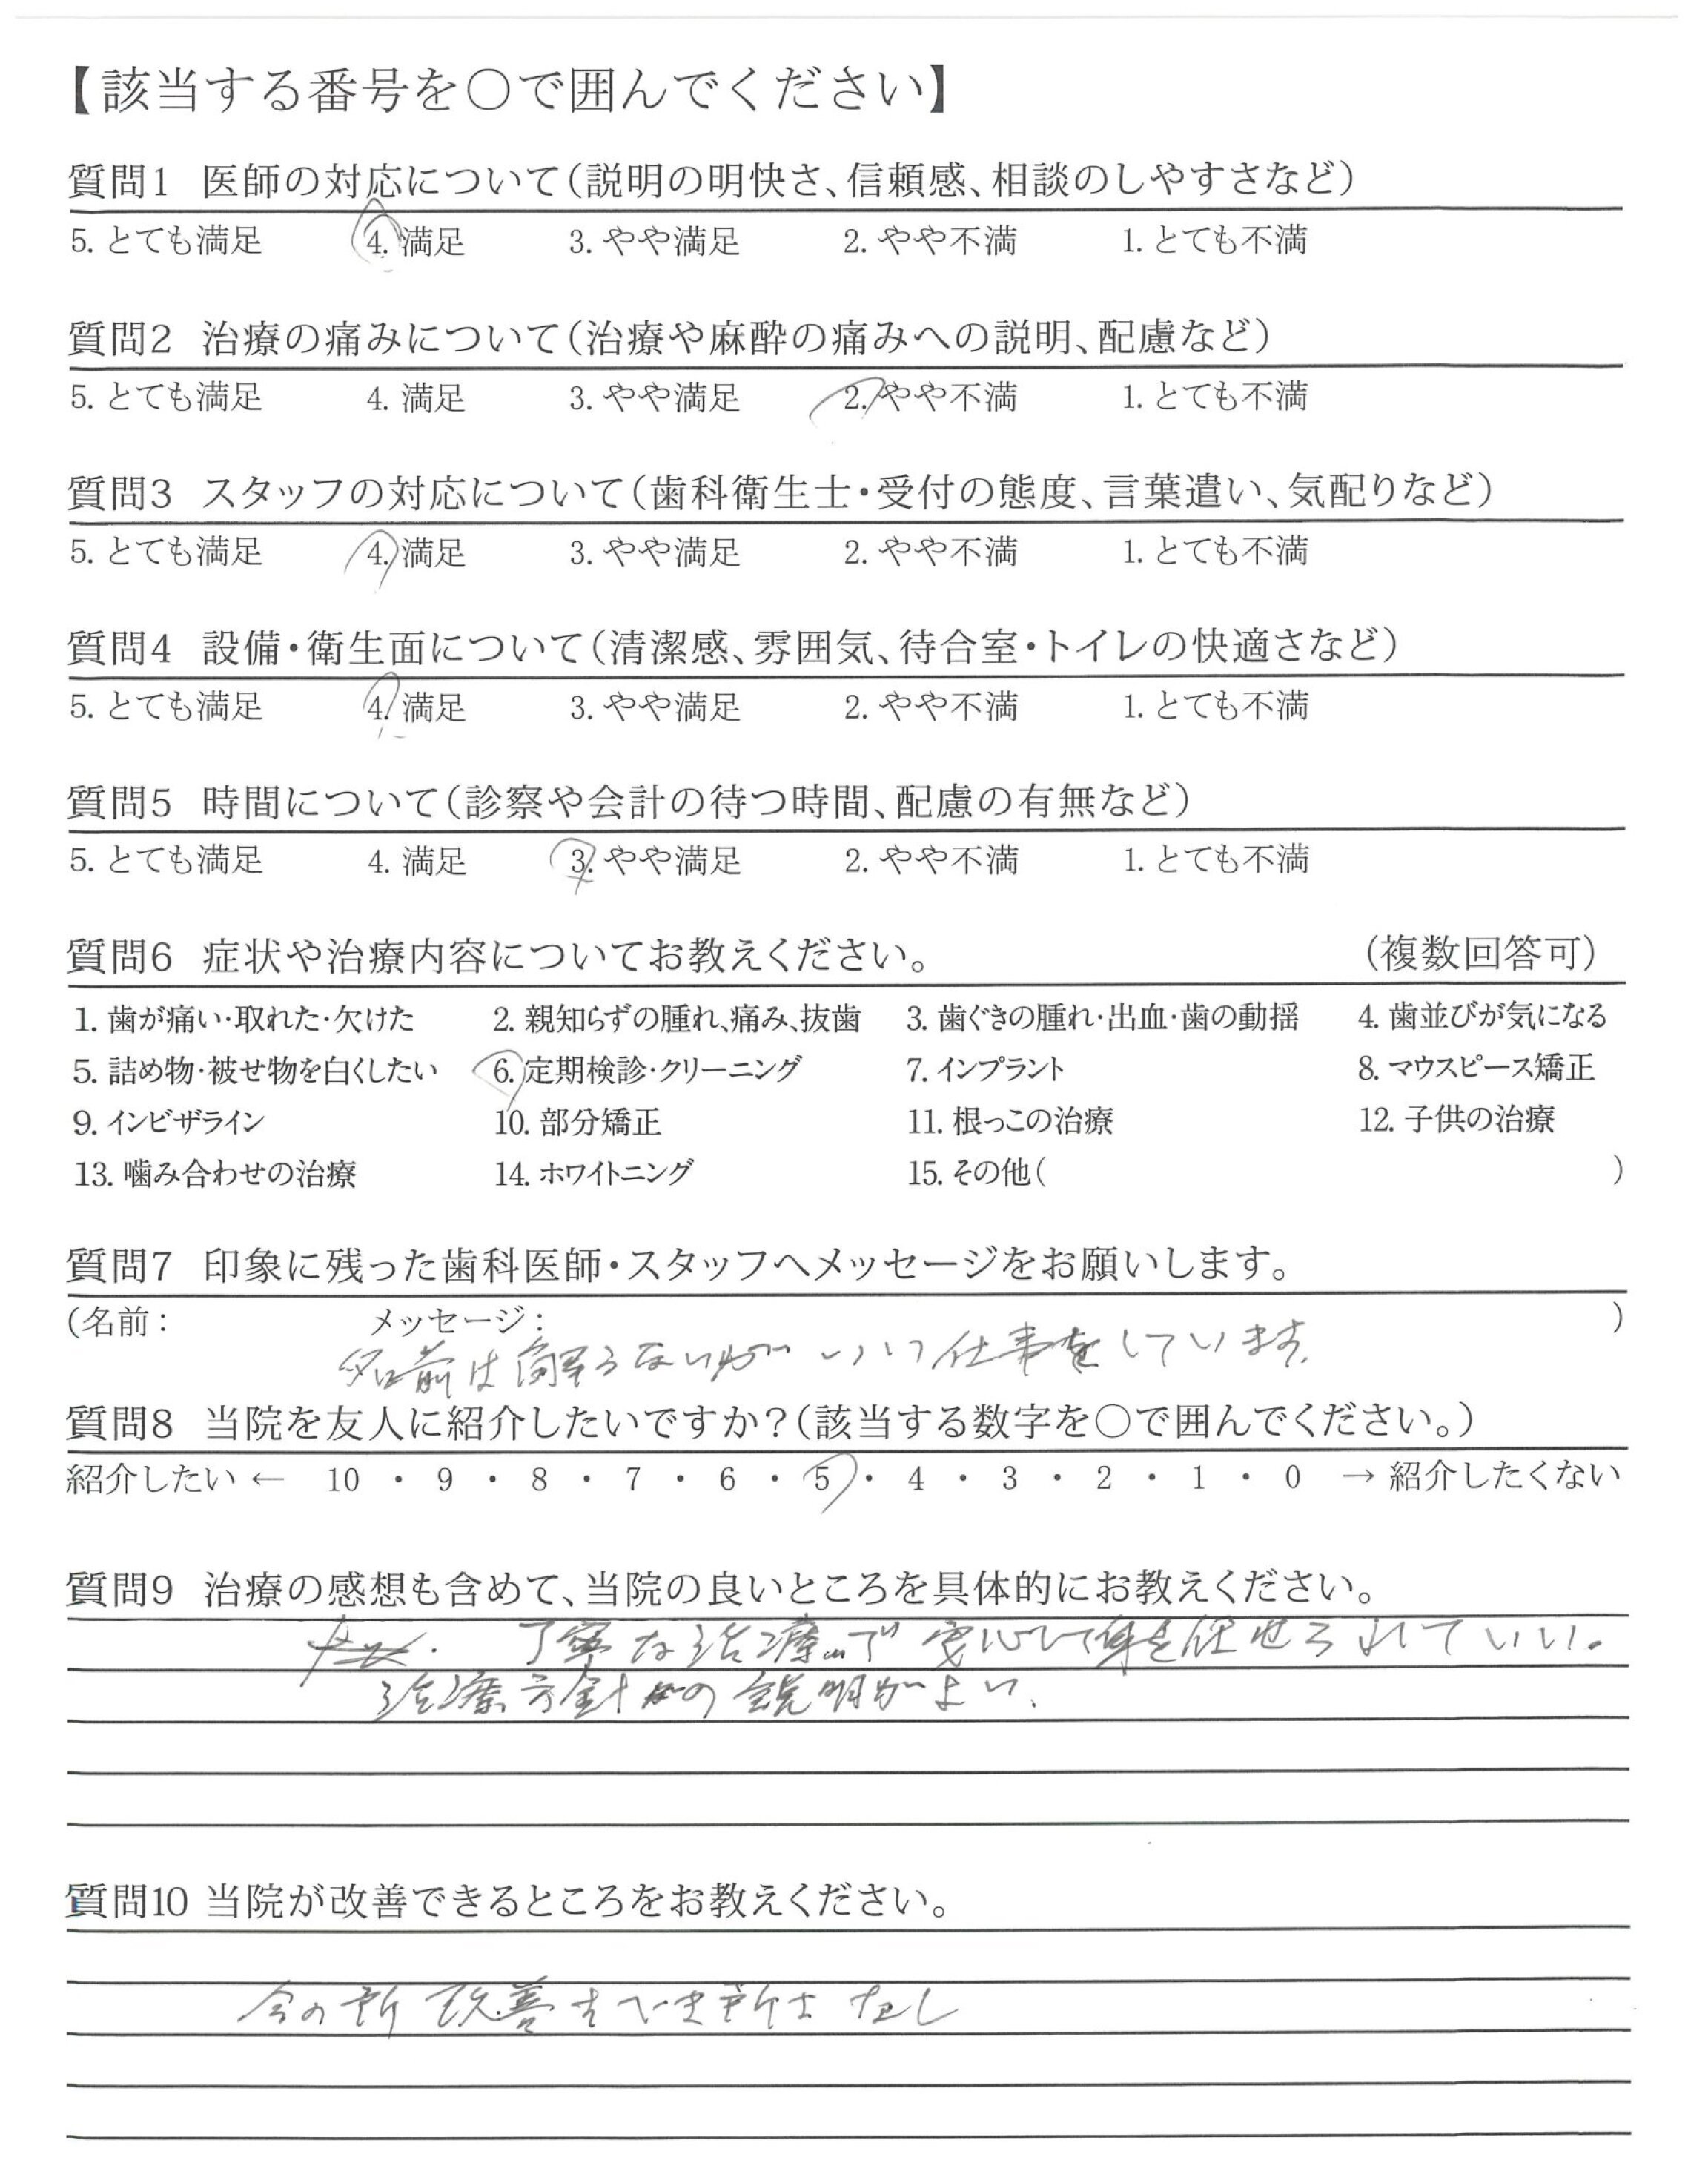 【該当する番号を○で囲んでください】
質問1 医師の対応について(説明の明快さ、信頼感、相談のしやすさなど)
5. とても満足 4. 満足 3. やや満足 2. やや不満 1. とても不満
質問2 治療の痛みについて(治療や麻酔の痛みへの説明、配慮など)
5. とても満足 4. 満足 3. やや満足 2. やや不満 1. とても不満
質問3 スタッフの対応について(歯科衛生士・受付の態度、言葉遣い、気配りなど)
5. とても満足 4. 満足 3. やや満足 2. やや不満 1. とても不満
質問4 設備・衛生面について(清潔感、雰囲気、待合室・トイレの快適さなど)
5. とても満足 4. 満足 3. やや満足 2. やや不満 1. とても不満
質問5 時間について(診察や会計の待つ時間、配慮の有無など)
5. とても満足 4. 満足 3. やや満足 2. やや不満 1. とても不満
質問6 症状や治療内容についてお教えください。 (複数回答可)
1. 歯が痛い・取れた・欠けた 2. 親知らずの腫れ、痛み、抜歯 3. 歯ぐきの腫れ・出血・歯の動揺 4. 歯並びが気になる
5. 詰め物・被せ物を白くしたい 6. 定期検診・クリーニング 7. インプラント 8. マウスピース矯正
9. インビザライン 10. 部分矯正 11. 根っこの治療 12. 子供の治療
13. 噛み合わせの治療 14. ホワイトニング 15. その他( )
質問7 印象に残った歯科医師・スタッフへメッセージをお願いします。
(名前: メッセージ: )
名前は ないが いい仕事をしています。
質問8 当院を友人に紹介したいですか?(該当する数字を○で囲んでください。)
紹介したい ← 10 ・ 9 ・ 8 ・ 7 ・ 6 ・ 5 ・ 4 ・ 3 ・ 2 ・ 1 ・ 0 → 紹介したくない
質問9 治療の感想も含めて、当院の良いところを具体的にお教えください。
丁寧な治療で安心して身を任せられていい。
治療方針の説明がよい。
質問10 当院が改善できるところをお教えください。
今の所 改善すべき所はなし